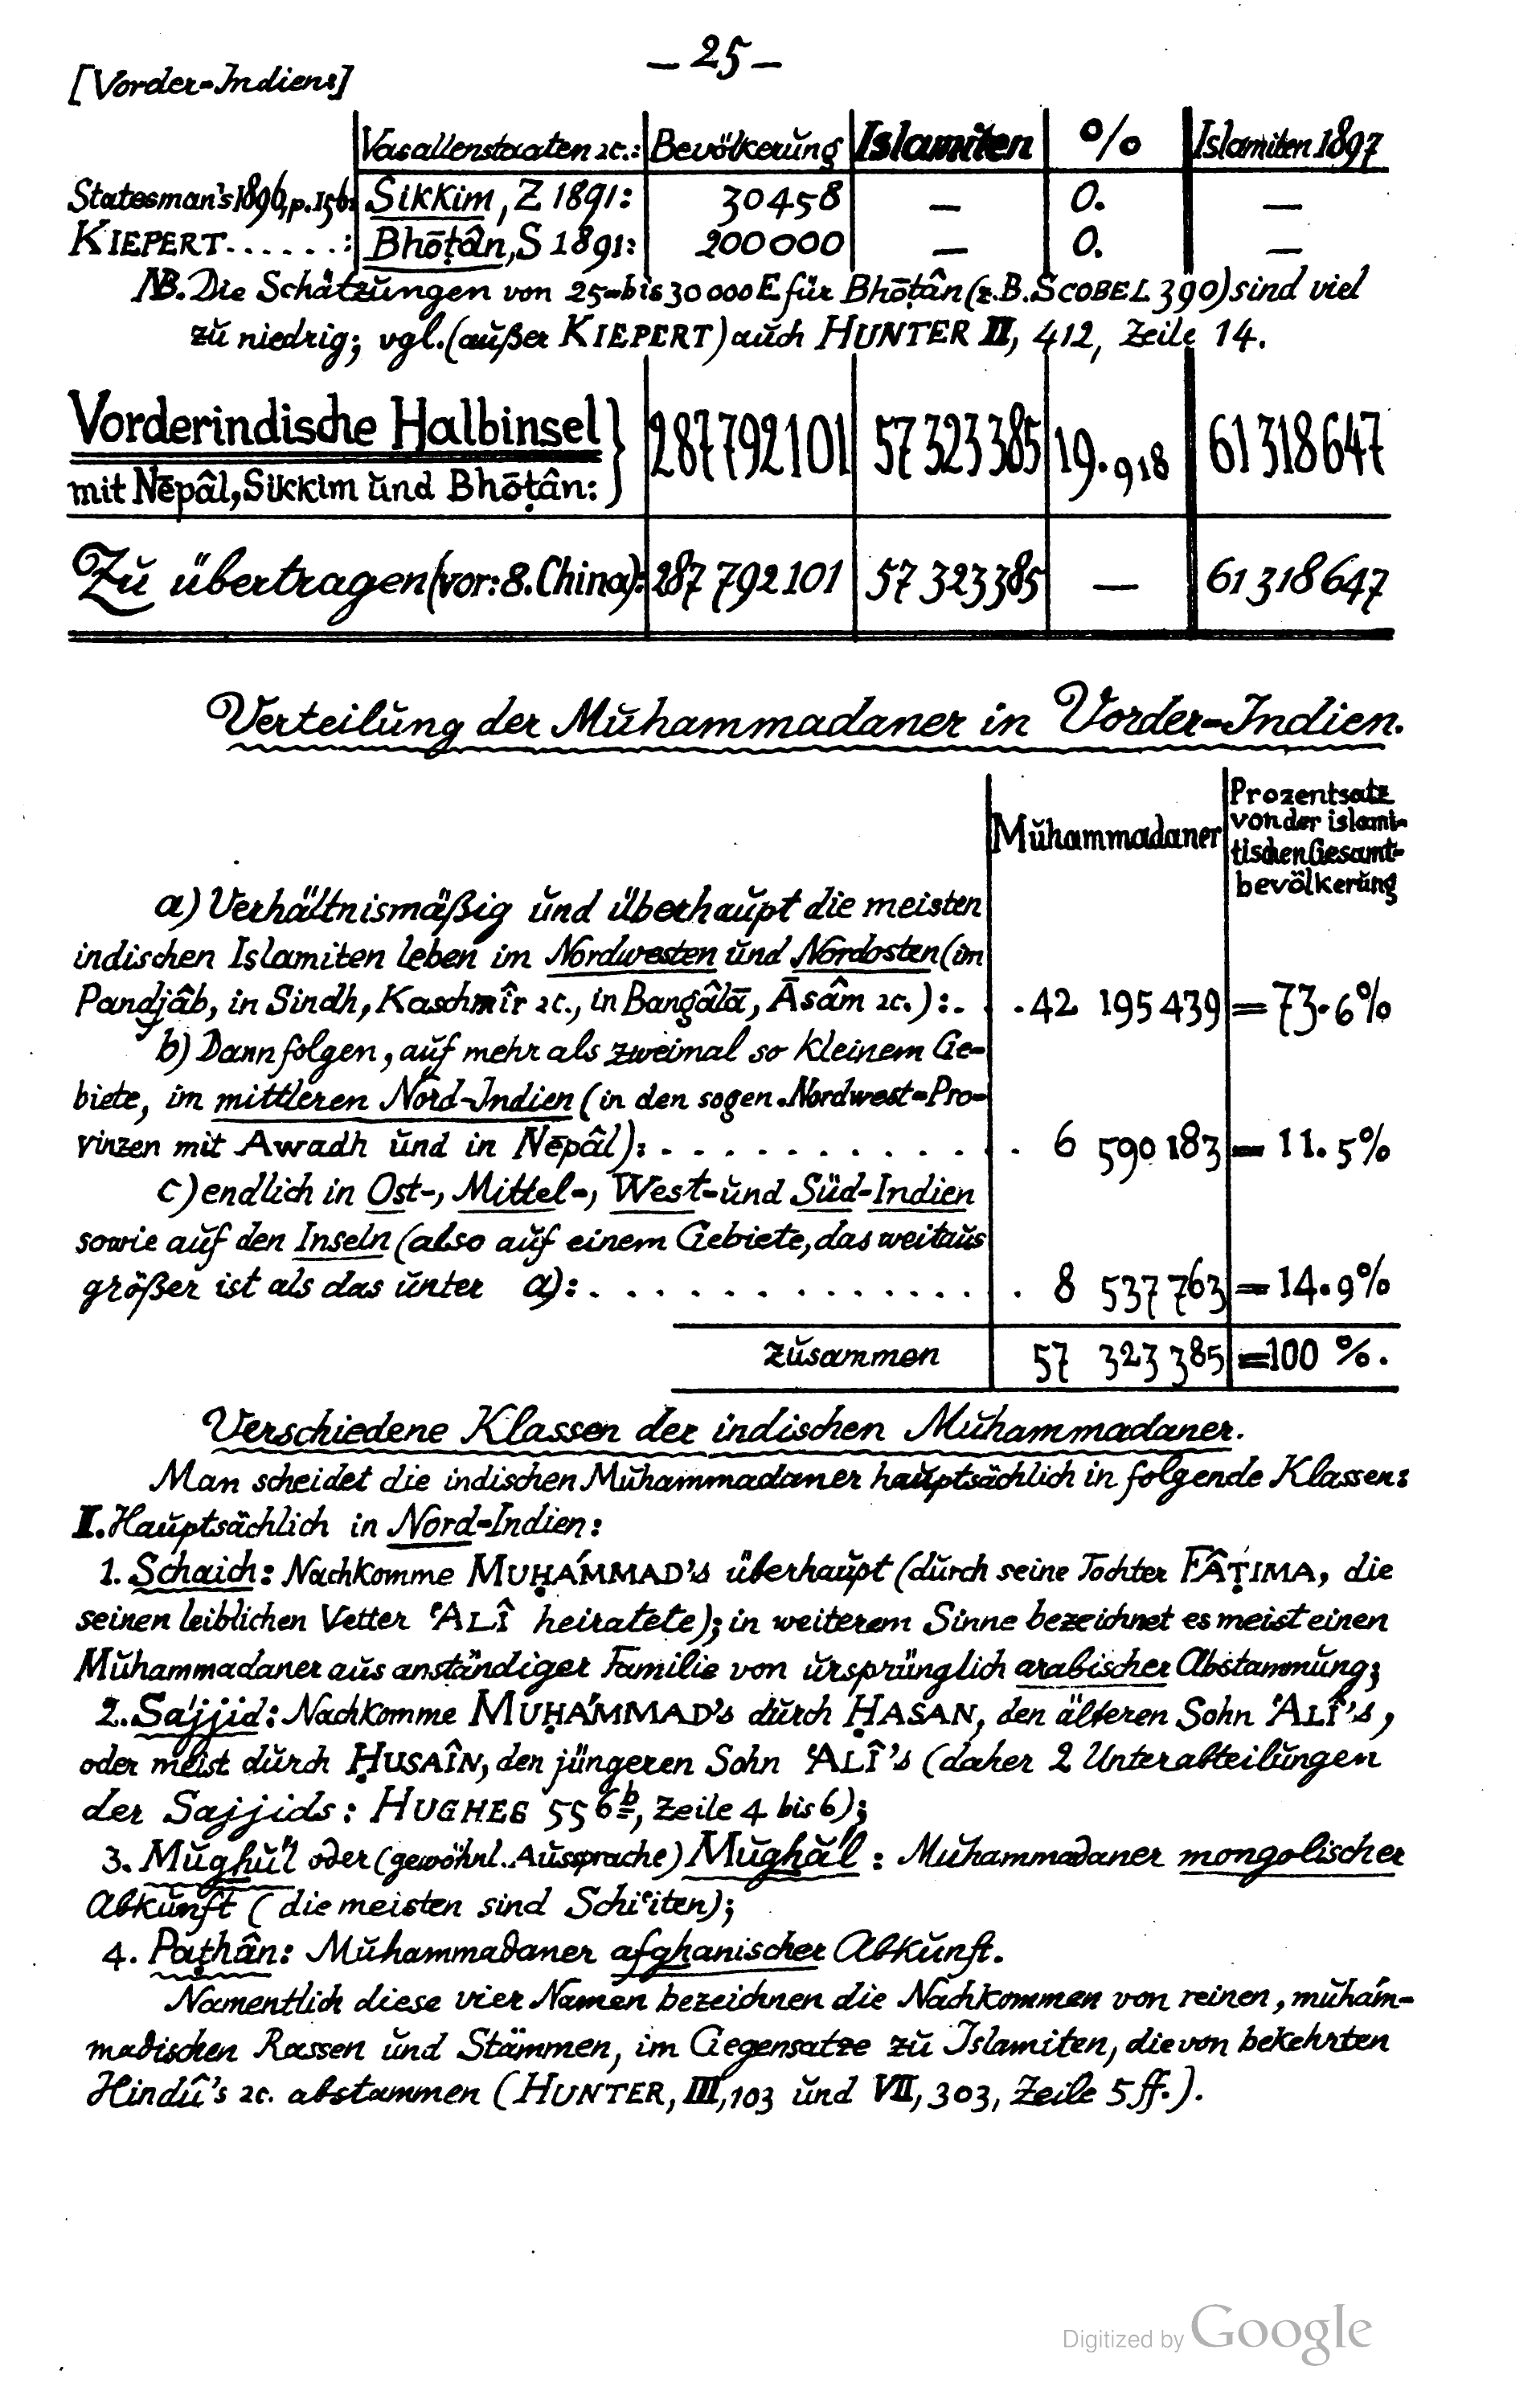 — 25 —
[Vorder-Indiens]
Vasallenstaaten ꝛc.: Bevölkerung Islamiten % Islamiten 1897
Statesman's 1896, p. 156: Sikkim, Z 1891: 30458 — 0. —
KIEPERT......: Bhōṭân, S 1891: 200000 — 0. —
NB. Die Schätzungen von 25- bis 30 000 E für Bhōṭân (z.B. SCOBEL 390) sind viel
zu niedrig; vgl. (außer KIEPERT) auch HUNTER II, 412, Zeile 14.
Vorderindische Halbinsel } 287792101 57323385 19.918 61318647
mit Nēpâl, Sikkim und Bhōṭân:
Zu übertragen (vor: 8. China): 287 792 101 57 323 385 — 61 318 647
Verteilung der Muhammadaner in Vorder-Indien.
Muhammadaner Prozentsatz
von der islami-
tischen Gesamt-
bevölkerung
a) Verhältnismäßig und überhaupt die meisten
indischen Islamiten leben im Nordwesten und Nordosten (im
Pandjâb, in Sindh, Kaschmîr ꝛc., in Bangâlā, Āsâm ꝛc.):. . 42 195 439 = 73.6%
b) Dann folgen, auf mehr als zweimal so kleinem Ge-
biete, im mittleren Nord-Indien (in den sogen. Nordwest-Pro-
vinzen mit Awadh und in Nēpâl): . . . . . . . . . . . . 6 590 183 = 11.5%
c) endlich in Ost-, Mittel-, West- und Süd-Indien
sowie auf den Inseln (also auf einem Gebiete, das weitaus
größer ist als das unter a): . . . . . . . . . . . . . . . 8 537 763 = 14.9%
zusammen 57 323 385 = 100 %.
Verschiedene Klassen der indischen Muhammadaner.
Man scheidet die indischen Muhammadaner hauptsächlich in folgende Klassen:
I. Hauptsächlich in Nord-Indien:
1. Schaich: Nachkomme MUḤÁMMAD's überhaupt (durch seine Tochter FÂṬIMA, die
seinen leiblichen Vetter ʿALÎ heiratete); in weiterem Sinne bezeichnet es meist einen
Muhammadaner aus anständiger Familie von ursprünglich arabischer Abstammung;
2. Sájjid: Nachkomme MUḤÁMMAD's durch ḤASAN, den älteren Sohn ʿALÎ's,
oder meist durch ḤUSAÎN, den jüngeren Sohn ʿALÎ's (daher 2 Unterabteilungen
der Sajjids: HUGHES 556b, Zeile 4 bis 6);
3. Mughúl oder (gewöhnl. Aussprache) Mughál: Muhammadaner mongolischer
Abkunft (die meisten sind Schiʿiten);
4. Paṭhân: Muhammadaner afghanischer Abkunft.
Namentlich diese vier Namen bezeichnen die Nachkommen von reinen, muhám-
madischen Rassen und Stämmen, im Gegensatze zu Islamiten, die von bekehrten
Hindû's ꝛc. abstammen (HUNTER, III, 103 und VII, 303, Zeile 5 ff.).
Digitized by Google